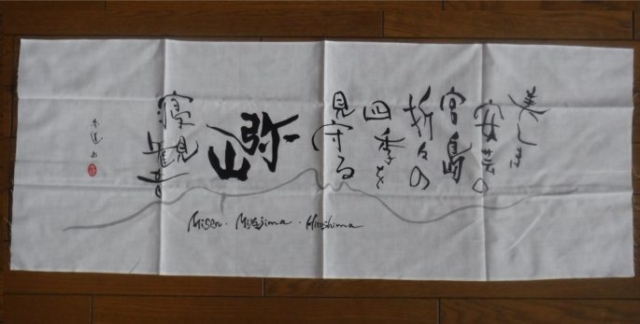 美しき
安芸の
宮島
折々の
四季を
見守る
弥山
寝観音
Misen・Miyajima・Hiroshima